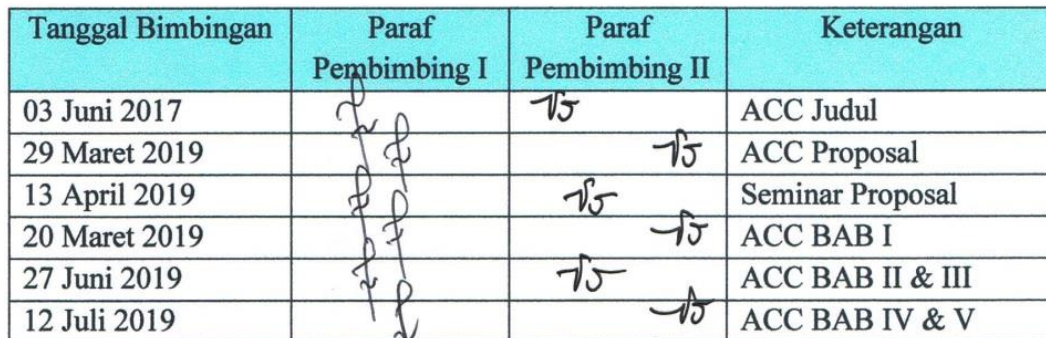 Tanggal Bimbingan Paraf Pembimbing I Paraf Pembimbing II Keterangan
03 Juni 2017 ACC Judul
29 Maret 2019 ACC Proposal
13 April 2019 Seminar Proposal
20 Maret 2019 ACC BAB I
27 Juni 2019 ACC BAB II & III
12 Juli 2019 ACC BAB IV & V